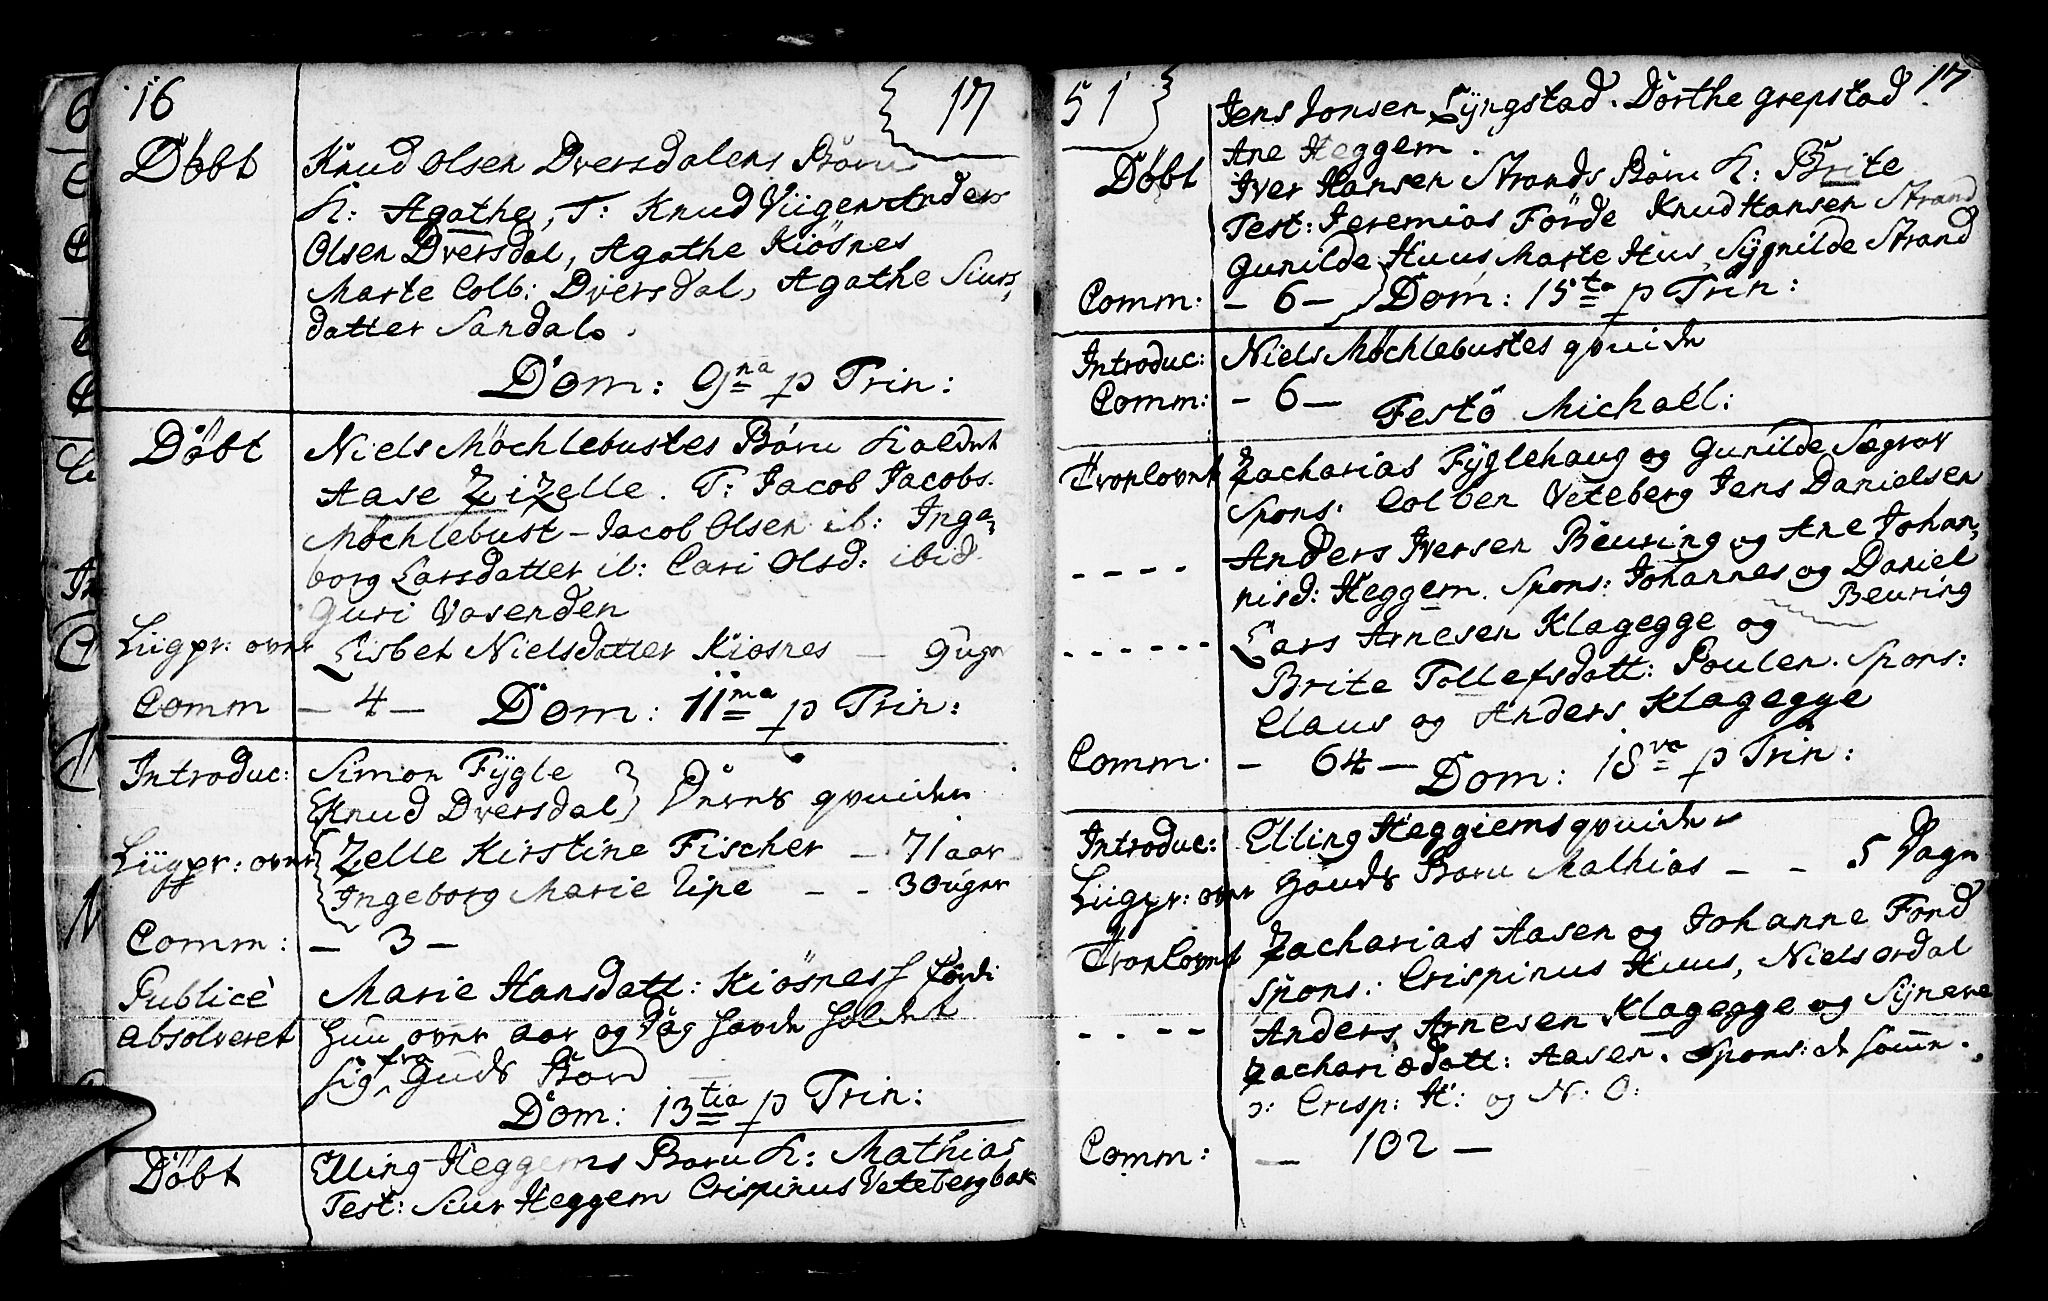 16 17
Döbt Knud Olsen Dversdalens Barn
K: Agathe, T: Knud Viigen Anders
Olsen Dversdal, Agathe Kiösnes
Marte Colb: Dversdal, Agathe Siurs,
datter Sandal.
Dom: 9na p Trin:
Döbt Niels Möchlebustes Barn kaldet
Aase Zizelle. T: Jacob Jacobs.
Möchlebust - Jacob Olsen ib: Inge,
borg Larsdatter ib: Cari Olsd: ibid
Guri Vasenden
Liigpr: over Lisbet Nielsdatter Kiösnes — 9 uger
Comm — 4 — Dom: 11ma p Trin:
Introduc: Simon Fÿgle
Knud Dversdal } Deres qvinder
Liigpr: over Zelle Kirstine Fischer — 71 aar
Ingeborg Marie Ripe — - 3 Uger
Comm: — 3 —
Publicè Marie Hansdatt: Kiösnes fordi
absolveret hun over aar og Dag havde holdet
sig fra Guds Bord
Dom: 13tia p Trin:
Döbt Elling Heggems Barn K: Mathias
Test: Siur Heggem Crispinus Vetebergbak
51 17
Jens Jonsen Lÿngstad. Dorthe Grepstad
Ane Heggem.
Döbt Iver Hansen Strands Barn K: Brite
Test: Jeremias Förde Knud Hansen Strand
Gunilde Huus Marte Hus, Sÿgnilde Strand
Comm: — 6 — Dom: 15ta p Trin:
Introduc: Niels Möchlebustes qvinde
Comm: - 6 — Festo Michaël:
Trolovet Zacharias Fÿglehaug og Gunilde Sægrov
Spons: Colben Veteberg Jens Danielsen
- - - - Anders Iversen Beuring og Ane Johan,
nisd: Heggem. Spons: Johannes og Daniel
Beuring
- - - - - - Lars Arnesen Klagegge og
Brite Tollefsdatt: Poulen. Spons:
Claus og Anders Klagegge
Comm. - 64 — Dom: 18va p Trin:
Introduc: Elling Heggiems qvinde
Liigpr: over Hands Barn Mathias — - 5 Dage
Trolovet Zacharias Aasen og Johanne Fond
Spons: Crispinus Huus, Niels Ordal
- - - - Anders Arnesen Klagegge og Sÿneve
Zachariædatt: Aasen. Spons: de samme.
ɔ: Crisp: H: og N: O:
Comm: — 102 —